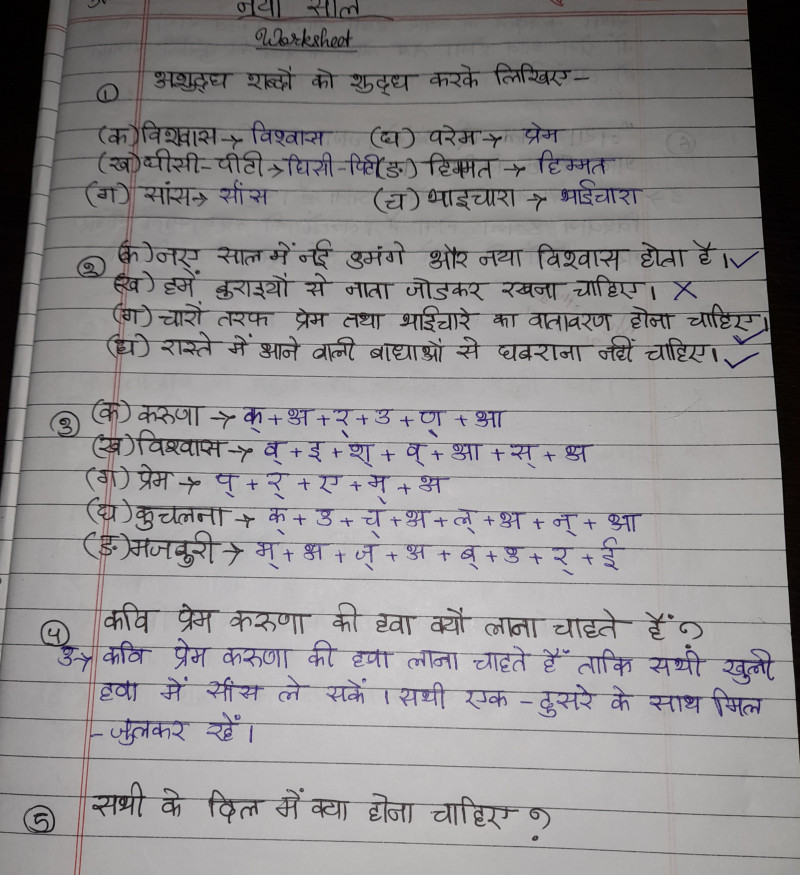 नया साल
Worksheet
① अशुद्ध शब्दों को शुद्ध करके लिखिए-
(क) विशवास → विश्वास (घ) परेम → प्रेम
(ख) घीसी-पीटी → घिसी-पिटी (ङ) हिक्मत → हिम्मत
(ग) सांस → साँस (च) भाइचारा → भाईचारा
② (क) नए साल में नई उमंगे और नया विश्वास होता है। ✓
(ख) हमें बुराइयों से नाता जोडकर रखना चाहिए। ×
(ग) चारों तरफ प्रेम तथा भाईचारे का वातावरण होना चाहिए। ✓
(घ) रास्ते में आने वाली बाधाओं से घबराना नहीं चाहिए। ✓
③ (क) करुणा → क् + अ + र् + उ + ण् + आ
(ख) विश्वास → व् + इ + श् + व् + आ + स् + अ
(ग) प्रेम → प् + र् + ए + म् + अ
(घ) कुचलना → क् + उ + च् + अ + ल् + अ + न् + आ
(ङ) मजबुरी → म् + अ + ज् + अ + ब् + उ + र् + ई
④ कवि प्रेम करुणा की हवा क्यों लाना चाहते हैं?
उ→ कवि प्रेम करुणा की हवा लाना चाहते हैं ताकि सभी खुली
हवा में साँस ले सकें। सभी एक-दुसरे के साथ मिल
-जुलकर रहें।
⑤ सभी के दिल में क्या होना चाहिए?